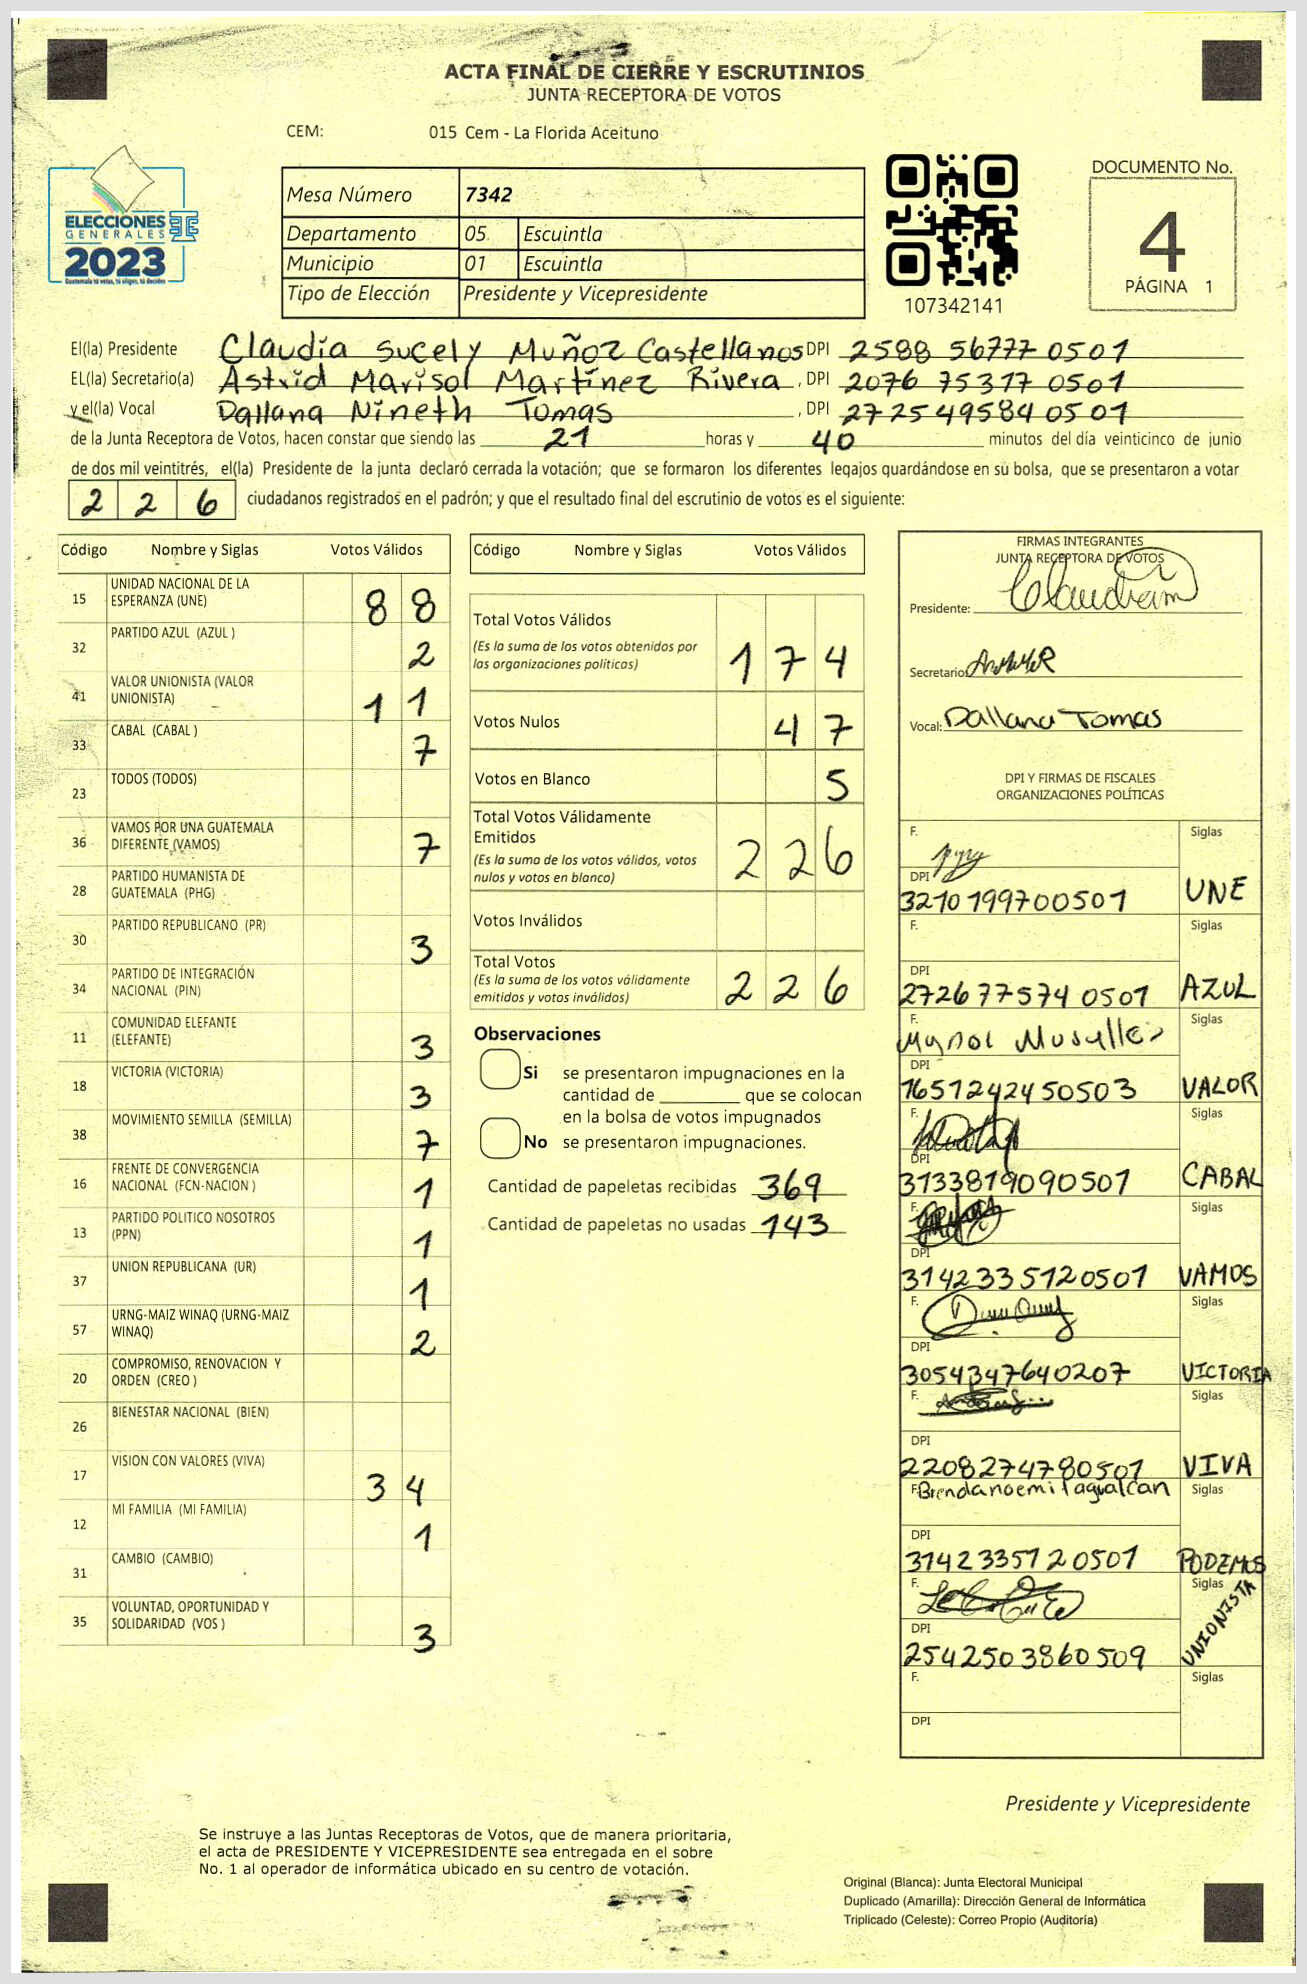 ACTA FINAL DE CIERRE Y ESCRUTINIOS
JUNTA RECEPTORA DE VOTOS
CEM: 015 Cem - La Florida Aceituno
ELECCIONES
GENERALES
2023
Guatemala tú votas, tú eliges, tú decides
Mesa Número 7342
Departamento 05 Escuintla
Municipio 01 Escuintla
Tipo de Elección Presidente y Vicepresidente
107342141
DOCUMENTO No.
4
PÁGINA 1
El(la) Presidente Claudia Sucely Muñoz Castellanos DPI 2588 56777 0501
EL(la) Secretario(a) Astrid Marisol Martínez Rivera , DPI 2076 75317 0501
y el(la) Vocal Dallana Nineth Tomas , DPI 272549584 0501
de la Junta Receptora de Votos, hacen constar que siendo las 21 horas y 40 minutos del día veinticinco de junio
de dos mil veintitrés, el(la) Presidente de la junta declaró cerrada la votación; que se formaron los diferentes legajos guardándose en su bolsa, que se presentaron a votar
2 2 6 ciudadanos registrados en el padrón; y que el resultado final del escrutinio de votos es el siguiente:
Código Nombre y Siglas Votos Válidos
15 UNIDAD NACIONAL DE LA ESPERANZA (UNE) 8 8
32 PARTIDO AZUL (AZUL ) 2
41 VALOR UNIONISTA (VALOR UNIONISTA) 1 1
33 CABAL (CABAL ) 7
23 TODOS (TODOS)
36 VAMOS POR UNA GUATEMALA DIFERENTE (VAMOS) 7
28 PARTIDO HUMANISTA DE GUATEMALA (PHG)
30 PARTIDO REPUBLICANO (PR) 3
34 PARTIDO DE INTEGRACIÓN NACIONAL (PIN)
11 COMUNIDAD ELEFANTE (ELEFANTE) 3
18 VICTORIA (VICTORIA) 3
38 MOVIMIENTO SEMILLA (SEMILLA) 7
16 FRENTE DE CONVERGENCIA NACIONAL (FCN-NACION ) 1
13 PARTIDO POLITICO NOSOTROS (PPN) 1
37 UNION REPUBLICANA (UR) 1
57 URNG-MAIZ WINAQ (URNG-MAIZ WINAQ) 2
20 COMPROMISO, RENOVACION Y ORDEN (CREO )
26 BIENESTAR NACIONAL (BIEN)
17 VISION CON VALORES (VIVA) 3 4
12 MI FAMILIA (MI FAMILIA) 1
31 CAMBIO (CAMBIO)
35 VOLUNTAD, OPORTUNIDAD Y SOLIDARIDAD (VOS ) 3
Código Nombre y Siglas Votos Válidos
Total Votos Válidos
(Es la suma de los votos obtenidos por
las organizaciones políticas) 1 7 4
Votos Nulos 4 7
Votos en Blanco 5
Total Votos Válidamente
Emitidos
(Es la suma de los votos válidos, votos
nulos y votos en blanco) 2 2 6
Votos Inválidos
Total Votos
(Es la suma de los votos válidamente
emitidos y votos inválidos) 2 2 6
Observaciones
Si se presentaron impugnaciones en la
cantidad de ________ que se colocan
en la bolsa de votos impugnados
No se presentaron impugnaciones.
Cantidad de papeletas recibidas 369
Cantidad de papeletas no usadas 143
FIRMAS INTEGRANTES
JUNTA RECEPTORA DE VOTOS
Presidente:
Secretario:
Vocal: Dallana Tomas
DPI Y FIRMAS DE FISCALES
ORGANIZACIONES POLÍTICAS
F. Siglas
DPI
3210199700501 UNE
F. Siglas
DPI
272677574 0501 AZUL
F. Siglas
DPI
1651242450503 VALOR
F. Siglas
DPI
3133819090501 CABAL
F. Siglas
DPI
3142335120501 VAMOS
F. Siglas
DPI
3054347640207 VICTORIA
F. Siglas
DPI
2208274780501 VIVA
F. Siglas
DPI
3142335120501 PODEMOS
F. Siglas
DPI
2542503860509 UNIONISTA
F. Siglas
DPI
Presidente y Vicepresidente
Se instruye a las Juntas Receptoras de Votos, que de manera prioritaria,
el acta de PRESIDENTE Y VICEPRESIDENTE sea entregada en el sobre
No. 1 al operador de informática ubicado en su centro de votación.
Original (Blanca): Junta Electoral Municipal
Duplicado (Amarilla): Dirección General de Informática
Triplicado (Celeste): Correo Propio (Auditoría)